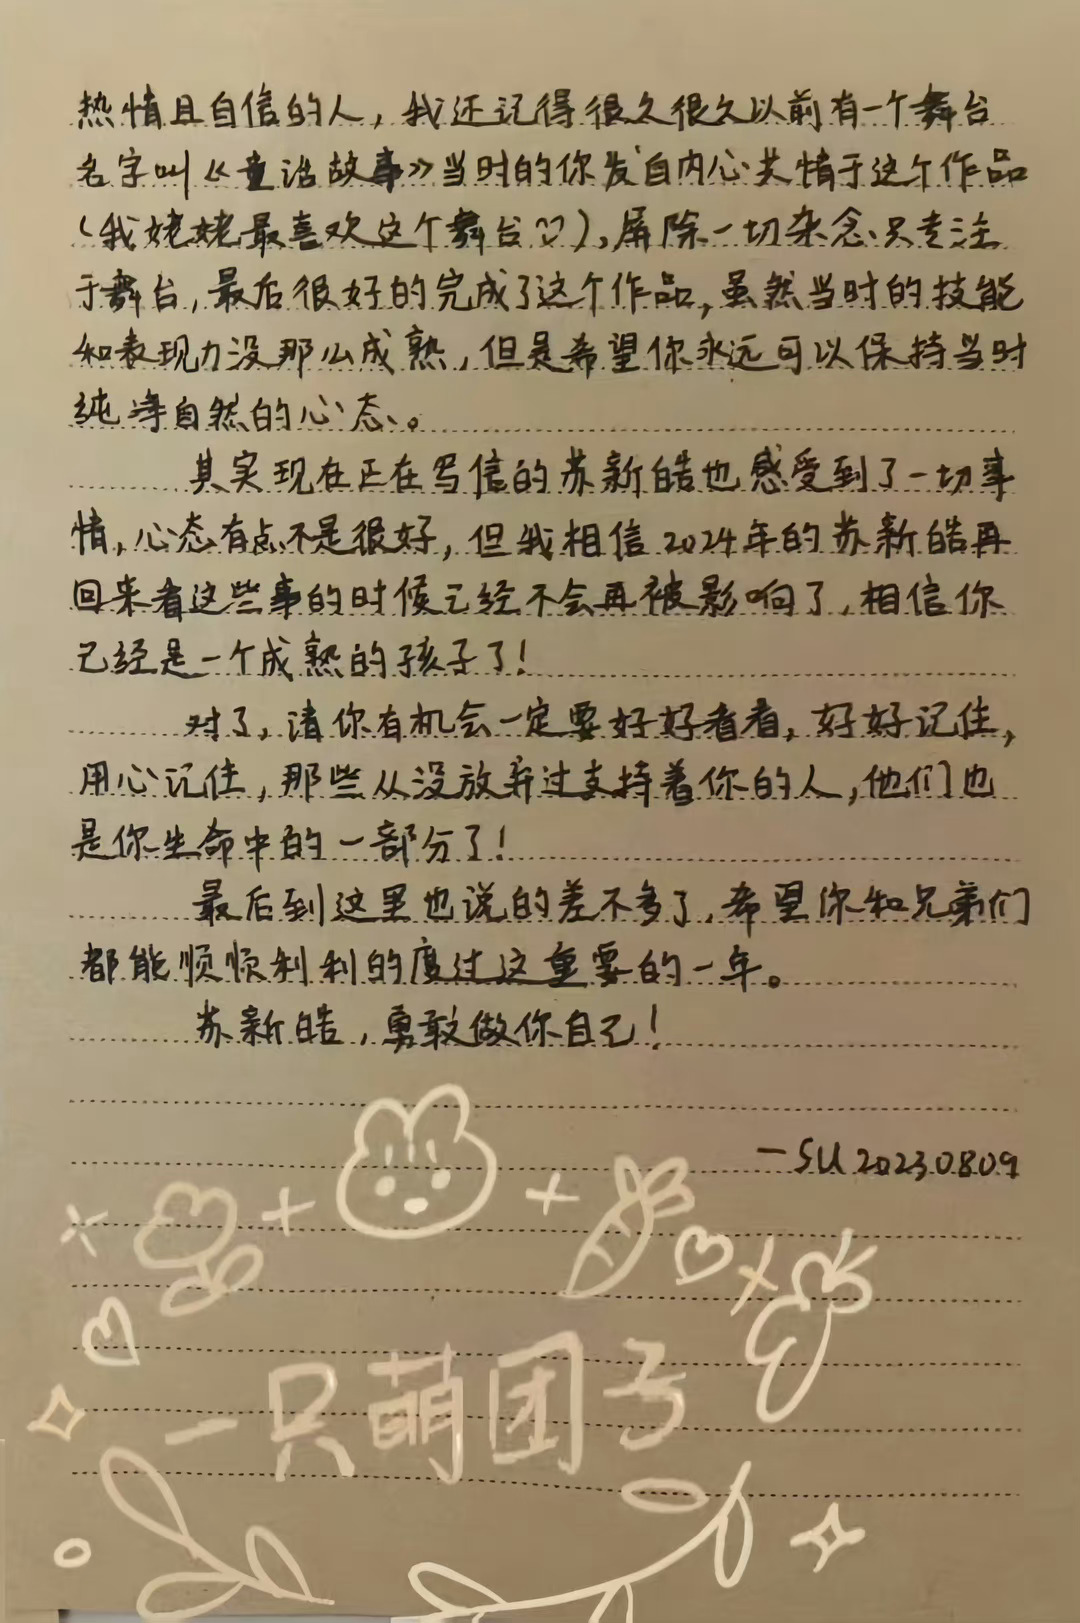 热情且自信的人，我还记得很久很久以前有一个舞台
名字叫《童话故事》当时的你发自内心共情于这个作品
（我姥姥最喜欢这个舞台♡），屏除一切杂念只专注
于舞台，最后很好的完成了这个作品，虽然当时的技能
和表现力没那么成熟，但是希望你永远可以保持当时
纯净自然的心态。
其实现在正在写信的苏新皓也感受到了一切事
情，心态有点不是很好，但我相信2024年的苏新皓再
回来看这些事的时候已经不会再被影响了，相信你
已经是一个成熟的孩子了！
对了，请你有机会一定要好好看看，好好记住，
用心记住，那些从没放弃过支持着你的人，他们也
是你生命中的一部分了！
最后到这里也说的差不多了，希望你和兄弟们
都能顺顺利利的度过这重要的一年。
苏新皓，勇敢做你自己！
—SU 2023.08.09
一只萌团子